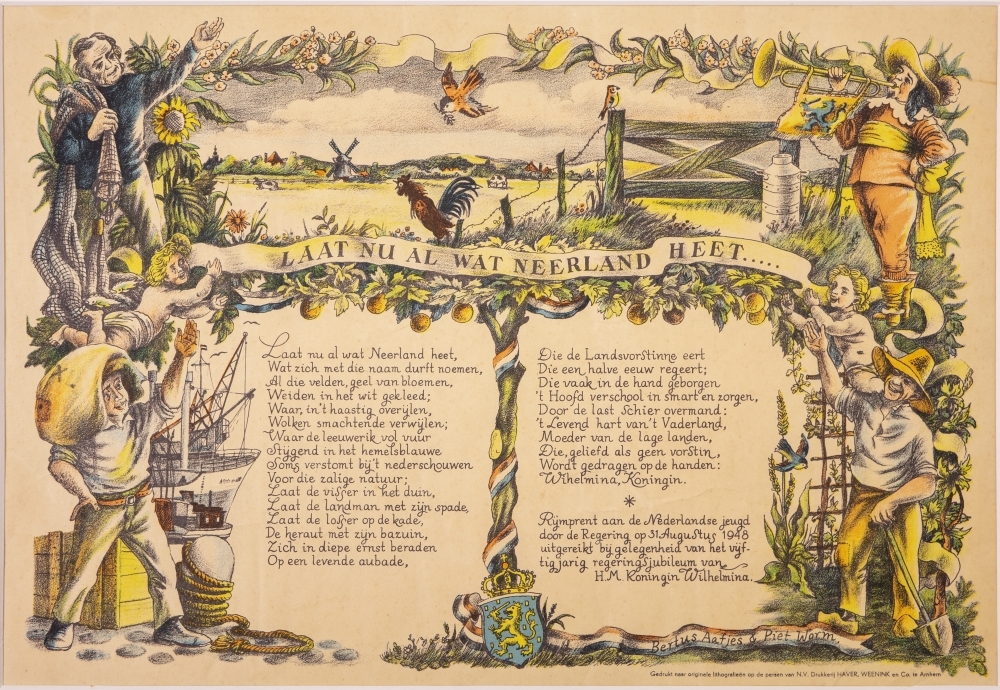 LAAT NU AL WAT NEERLAND HEET.....
Laat nu al wat Neerland heet,
Wat zich met die naam durft noemen,
Al die velden, geel van bloemen,
Weiden in het wit gekleed;
Waar, in't haastig overijlen,
Wolken smachtende verwijlen;
Waar de leeuwerik vol vuur
Stijgend in het hemelsblauwe
Soms verstomt bij't nederschouwen
Voor die zalige natuur;
Laat de visser in het duin,
Laat de landman met zijn spade,
Laat de losser op de kade,
De heraut met zijn bazuin,
Zich in diepe ernst beraden
Op een levende aubade,
Die de Landsvorstinne eert
Die een halve eeuw regeert;
Die vaak in de hand geborgen
't Hoofd verschool in smart en zorgen,
Door de last schier overmand:
't Levend hart van't Vaderland,
Moeder van de lage landen,
Die, geliefd als geen vorstin,
Wordt gedragen op de handen:
Wilhelmina, Koningin.
*
Rijmprent aan de Nederlandse jeugd
door de Regering op 31 Augustus 1948
uitgereikt bij gelegenheid van het vijf-
tigjarig regeringsjubileum van
H.M. Koningin Wilhelmina.
Bertus Aafjes & Piet Worm
Gedrukt naar originele lithografieën op de persen van N.V. Drukkerij HAVER, WEENINK en Co. te Arnhem